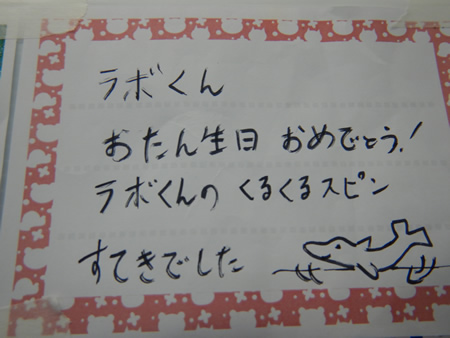 ラボくん
おたん生日 おめでとう!
ラボくんの くるくるスピン
すてきでした